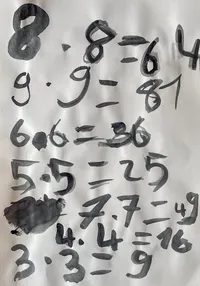 8 · 8 = 64
9 · 9 = 81
6 · 6 = 36
5 · 5 = 25
7 · 7 = 49
4 · 4 = 16
3 · 3 = 9